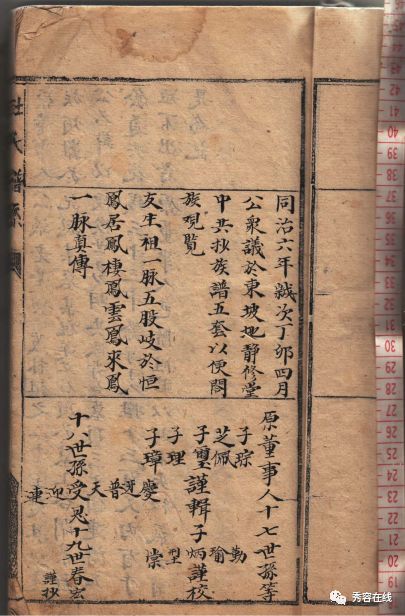 同治六年歲次丁卯四月
公衆議於東坡地靜修堂
中共抄族譜五套以便閤
族覌覧
友生祖一脉五股岐於恒
鳳居鳳棲鳳雲鳳來鳳
一脉真傳
原董事人十七世孫等
子琮 勤
芝佩 瑜
子璽謹輯子炳謹校
子理 型
子璋 棠
普天迎連
十八世孫受恩十九世春宏
謹抄
杜氏譜系
秀容在线